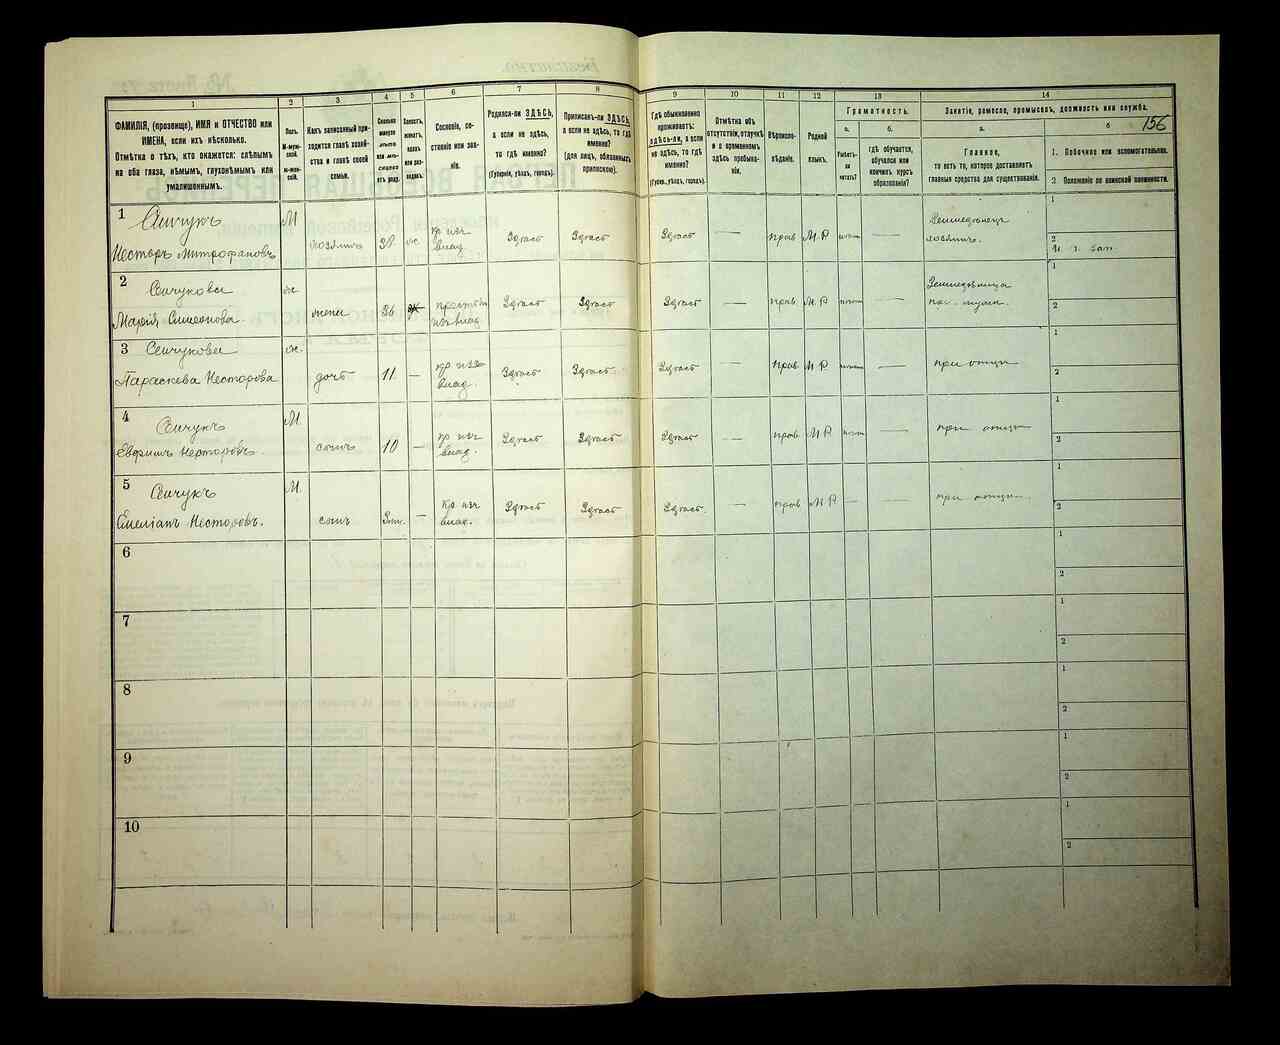 1 2 3 4 5 6 7 8 9 10 11 12 13 14
ФАМИЛІЯ, (прозвище), ИМЯ и ОТЧЕСТВО или
ИМЕНА, если ихъ нѣсколько.
Отмѣтка о тѣхъ, кто окажется: слѣпымъ
на оба глаза, нѣмымъ, глухонѣмымъ или
умалишеннымъ.
Полъ.
М-муж-
ской.
Ж-жен-
скій.
Какъ записанный при-
ходится главѣ хозяй-
ства и главѣ своей
семьи.
Сколько
минуло
лѣтъ
или мѣ-
сяцевъ
отъ роду.
Холостъ,
женатъ,
вдовъ
или раз-
веденъ.
Сословіе, со-
стояніе или зва-
ніе.
Родился-ли ЗДѢСЬ,
а если не здѣсь,
то гдѣ именно?
(Губернія, уѣздъ, городъ).
Приписанъ-ли ЗДѢСЬ,
а если не здѣсь, то гдѣ
именно?
(для лицъ, обязанныхъ
припискою).
Гдѣ обыкновенно
проживаетъ:
здѣсь-ли, а если
не здѣсь, то гдѣ
именно?
(Губерн., уѣздъ, городъ).
Отмѣтка объ
отсутствіи, отлучкѣ
и о временномъ
здѣсь пребыва-
ніи.
Вѣроиспо-
вѣданіе.
Родной
языкъ.
Грамотность.
а. б.
Умѣетъ-
ли
читать?
гдѣ обучается,
обучался или
кончилъ курсъ
образованія?
Занятіе, ремесло, промыселъ, должность или служба.
а. б
156
Главное,
то есть то, которое доставляетъ
главныя средства для существованія.
1. Побочное или вспомогательное.
2. Положеніе по воинской повинности.
1 Сенчукъ М 1
Несторъ Митрофановъ хозяинъ 38 кр изъ владѣ. Здѣсь Здѣсь Здѣсь — прав М.Р — Земледѣлецъ хозяинъ. 2
2 Сенчукова ж 1
Марія Симеонова жена 36 Здѣсь Здѣсь Здѣсь — прав М.Р — Земледѣлица 2
3 Сенчукова ж. 1
Параскева Несторова дочь 11 — кр изъ влад. Здѣсь Здѣсь Здѣсь — прав М Р — при отцѣ 2
4 Сенчукъ М. 1
Несторовъ. сынъ 10 — кр изъ влад. Здѣсь Здѣсь Здѣсь — прав М Р — при отцѣ 2
5 Сенчукъ М. 1
Емеліанъ Несторовъ. сынъ — кр изъ влад. Здѣсь Здѣсь Здѣсь. — прав М.Р — — при отцѣ 2
6 1
2
7 1
2
8 1
2
9 1
2
10 1
2